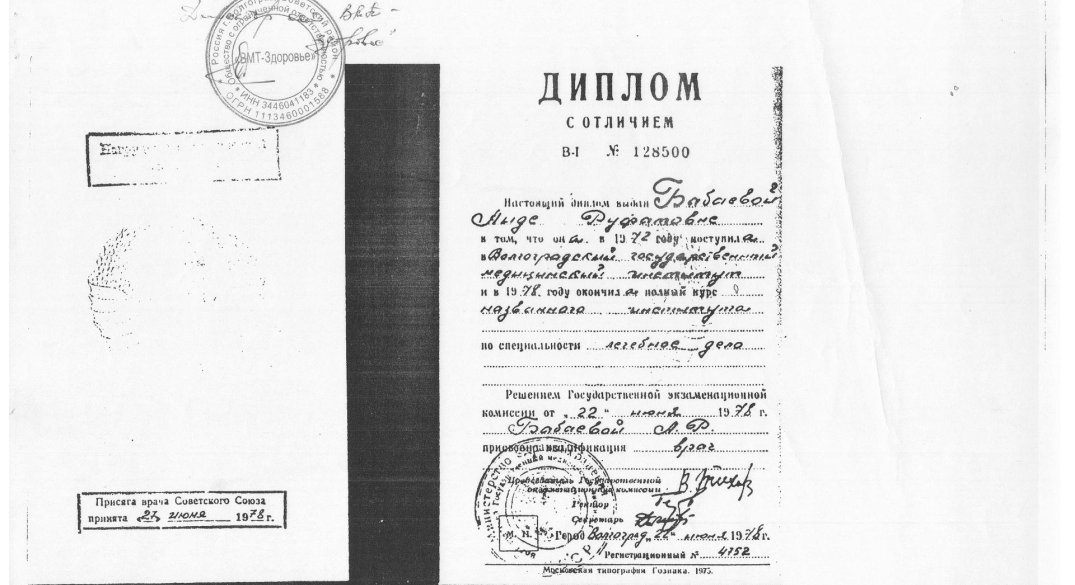 Россия г. Волгоград Советский район
Общество с ограниченной ответственностью
«ВМТ-Здоровье»
* ИНН 3446041183 *
ОГРН 1113460001588
Присяга врача Советского Союза
принята 27 июня 1978 г.
ДИПЛОМ
С ОТЛИЧИЕМ
В-I № 128500
Настоящий диплом выдан Бабаевой
Аиде Руфатовне
в том, что она в 1972 году поступила
в Волгоградский государственный
медицинский институт
и в 1978 году окончила полный курс
названного института
по специальности лечебное дело
Решением Государственной экзаменационной
комиссии от „22“ июня 1978 г.
Бабаевой А. Р.
присвоена квалификация врач
Председатель Государственной
экзаменационной комиссии
Ректор
Секретарь
М. П. Город Волгоград „22“ июня 1978 г.
Регистрационный № 4752
Московская типография Гознака. 1975.